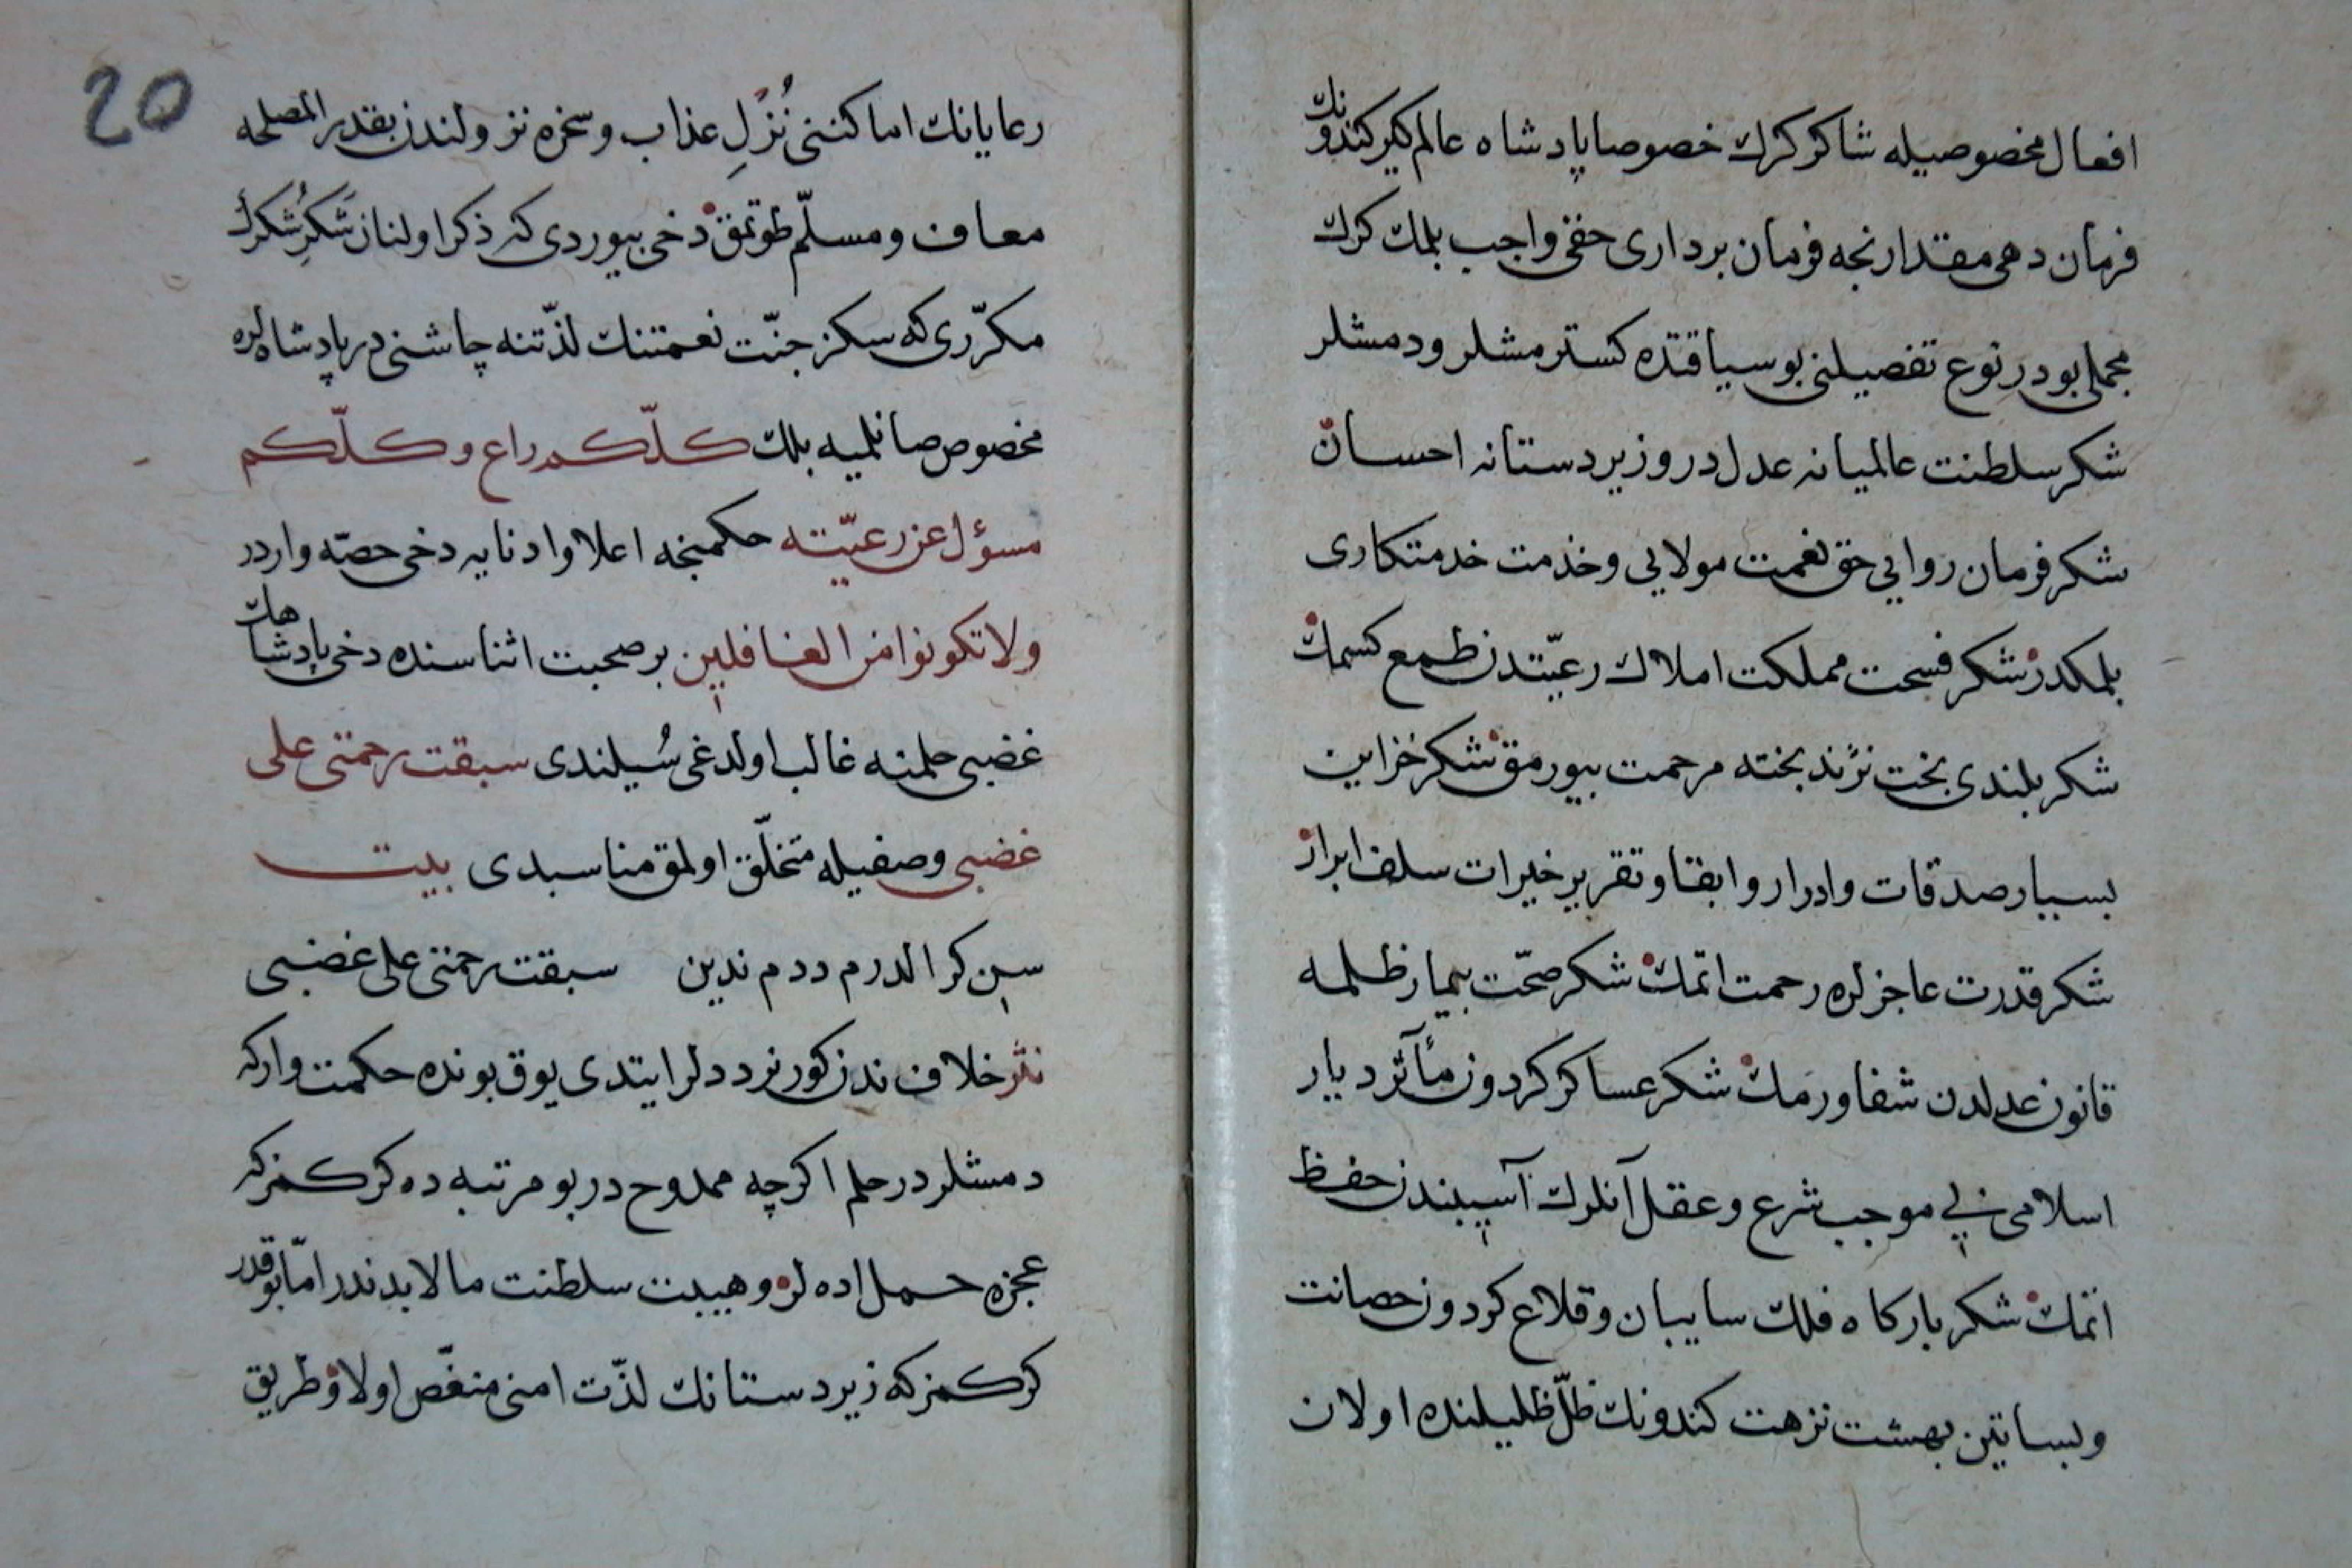 افعال مخصوصیله شاکر کرك خصوصا پادشاه عالم کیر کندونك
فرمان دهی مقدارنجه فرمان برداری حقنی واجب بلمك کرك
مجملی بودر نوع تفصیلنی بو سیاقتده کسترمشلر و دمشلر
شکر سلطنت عالمیانه عدل در و زیردستانه احسان
شکر فرمان روایی حق نعمت مولایی و خدمت خدمتکاری
بلمکدر شکر فسحت مملکت املاك رعیتدن طمع کسمك
شکر بلندی بخت نژند بخته مرحمت بیورمق شکر خزاین
بسیار صدقات و ادرار و ابقا و تقریر خیرات سلف ابرار
شکر قدرت عاجزلره رحمت اتمك شکر صحّت بیمار ظلمه
قانون عدلدن شفا ورمك شکر عساکر کردون مآثر دیار
اسلامی نی موجب شرع و عقل آنلرك آسیبندن حفظ
اتمك شکر بارکاه فلك سایبان و قلاع کردون حصانت
و بساتین بهشت نزهت کندونك ظلّ ظلیلنده اولان
20
رعایانك اماکننی نُزُلِ عذاب و سخره نزولندن بقدر المصلحه
معاف و مسلّم طوتمق دخی بیوردی که ذکر اولنان شَکرِ شُکرك
مکرّری که سکز جنّت نعمتنك لذّتنه چاشنی در پادشاهلره
مخصوص صانلمیه بلك کلّکم راع و کلّکم
مسؤل عن رعیّته حکمنجه اعلا و ادنایه دخی حصّه واردر
ولا تکونوا من الغافلین بر صحبت اثناسنده دخی پادشاهك
غضبی حلمنه غالب اولدغی سُیلندی سبقت رحمتی علی
غضبی وصفیله متخلّق اولمق مناسبدی بیت
سن کرا الدرم ددم ندین سبقت رحمتی علی غضبی
نثر خلاف ندن کورنر ددلر ایتدی یوق بونده حکمت وار که
دمشلردر حلم اکرچه ممدوح در بو مرتبه ده کرکمز که
عجزه حمل اده لر و هیبت سلطنت مالابدندر امّا بو قدر
کرکمز که زیردستانك لذّت امنی منغّص اولا و طریق